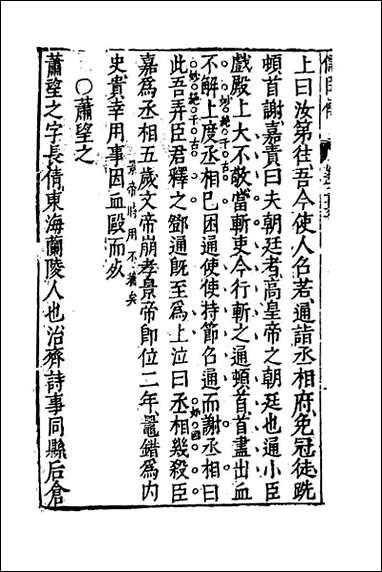 上曰汝第往吾今使人召若通詣丞相府免冠徒跣
頓首謝嘉責曰夫朝廷者高皇帝之朝廷也通小臣
戲殿上大不敬當斬吏今行斬之通頓首首盡出血
不解上度丞相已困通使使持節召通而謝丞相曰
此吾弄臣君釋之鄧通既至爲上泣曰丞相幾殺臣
嘉爲丞相五歲文帝崩孝景帝即位二年鼂錯爲内
史貴幸用事因血毆而死
景帝時用不着矣
○蕭望之
蕭望之字長倩東海蘭陵人也治齊詩事同縣后倉